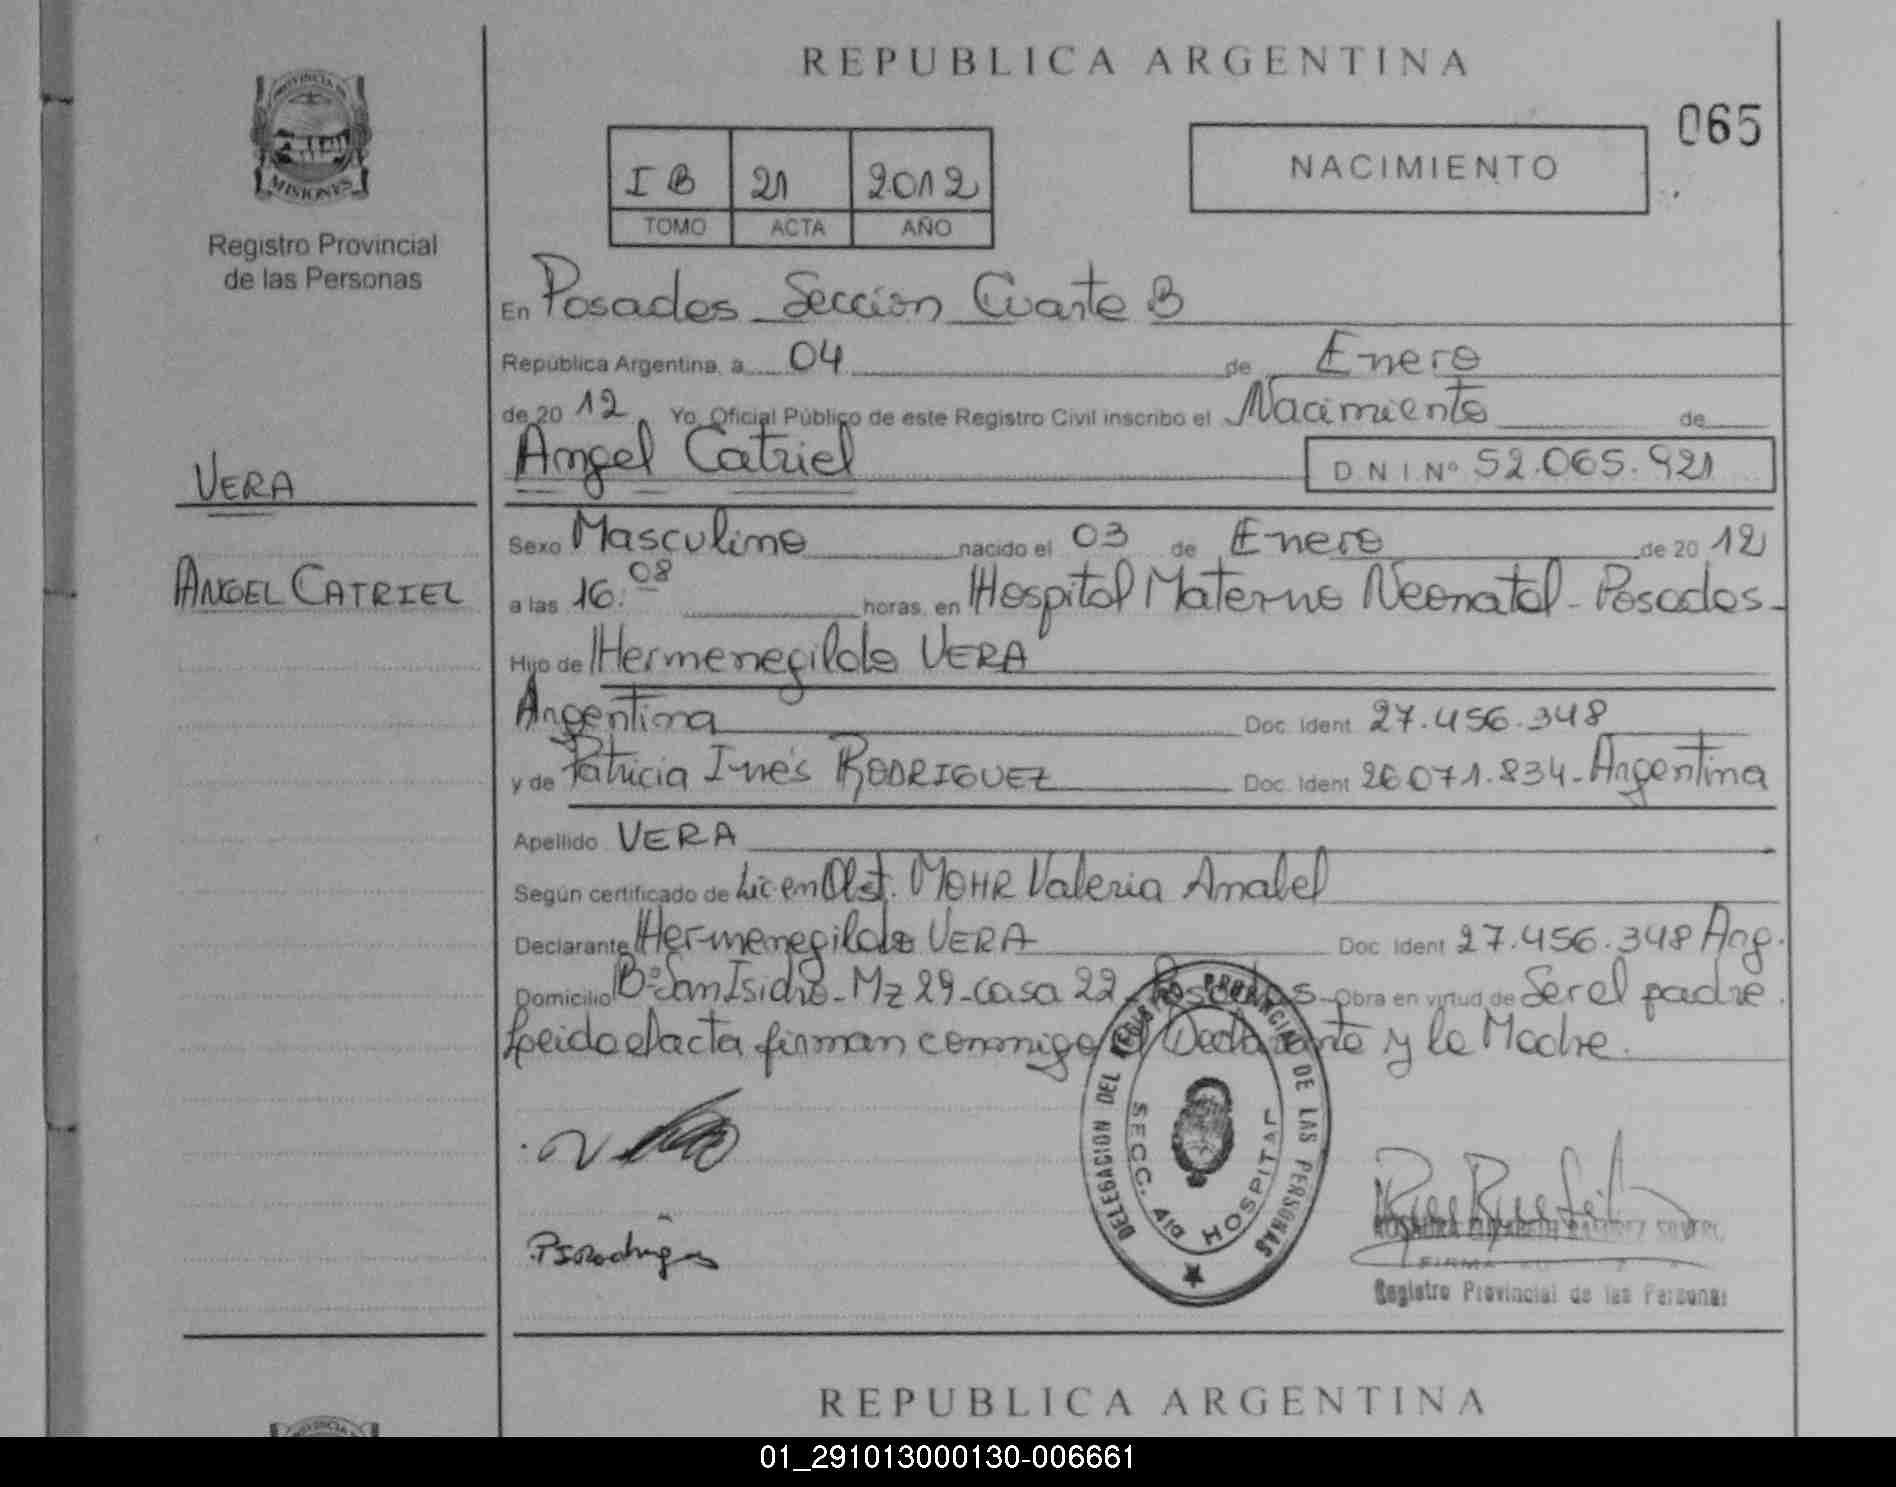 REPUBLICA ARGENTINA
065
PROVINCIA DE
MISIONES
Registro Provincial
de las Personas
I B 21 2012
TOMO ACTA AÑO
NACIMIENTO
En Posadas Sección Cuarta B
República Argentina, a 04 de Enero
de 20 12 Yo, Oficial Público de este Registro Civil inscribo el Nacimiento de
Angel Catriel D N I. Nº 52.065.921
VERA
ANGEL CATRIEL
Sexo Masculino nacido el 03 de Enero de 20 12
a las 16:08 horas, en Hospital Materno Neonatal - Posadas -
Hijo de Hermenegildo VERA
Argentina Doc. Ident 27.456.348
y de Patricia Inés RODRIGUEZ Doc. Ident 26071.834 - Argentina
Apellido VERA
Según certificado de Lic en Obst. MOHR Valeria Anabel
Declarante Hermenegildo VERA Doc. Ident 27.456.348 Arg.
Domicilio Bº San Isidro - Mz 29 - casa 22 - Posadas - Obra en virtud de Ser el padre.
Leida el acta firman conmigo el Declarante y la Madre.
DELEGACION DEL REGISTRO PROVINCIAL DE LAS PERSONAS
SECC. 4ta HOSPITAL
PIRodriguez
Registro Provincial de las Personas
REPUBLICA ARGENTINA
01_291013000130-006661